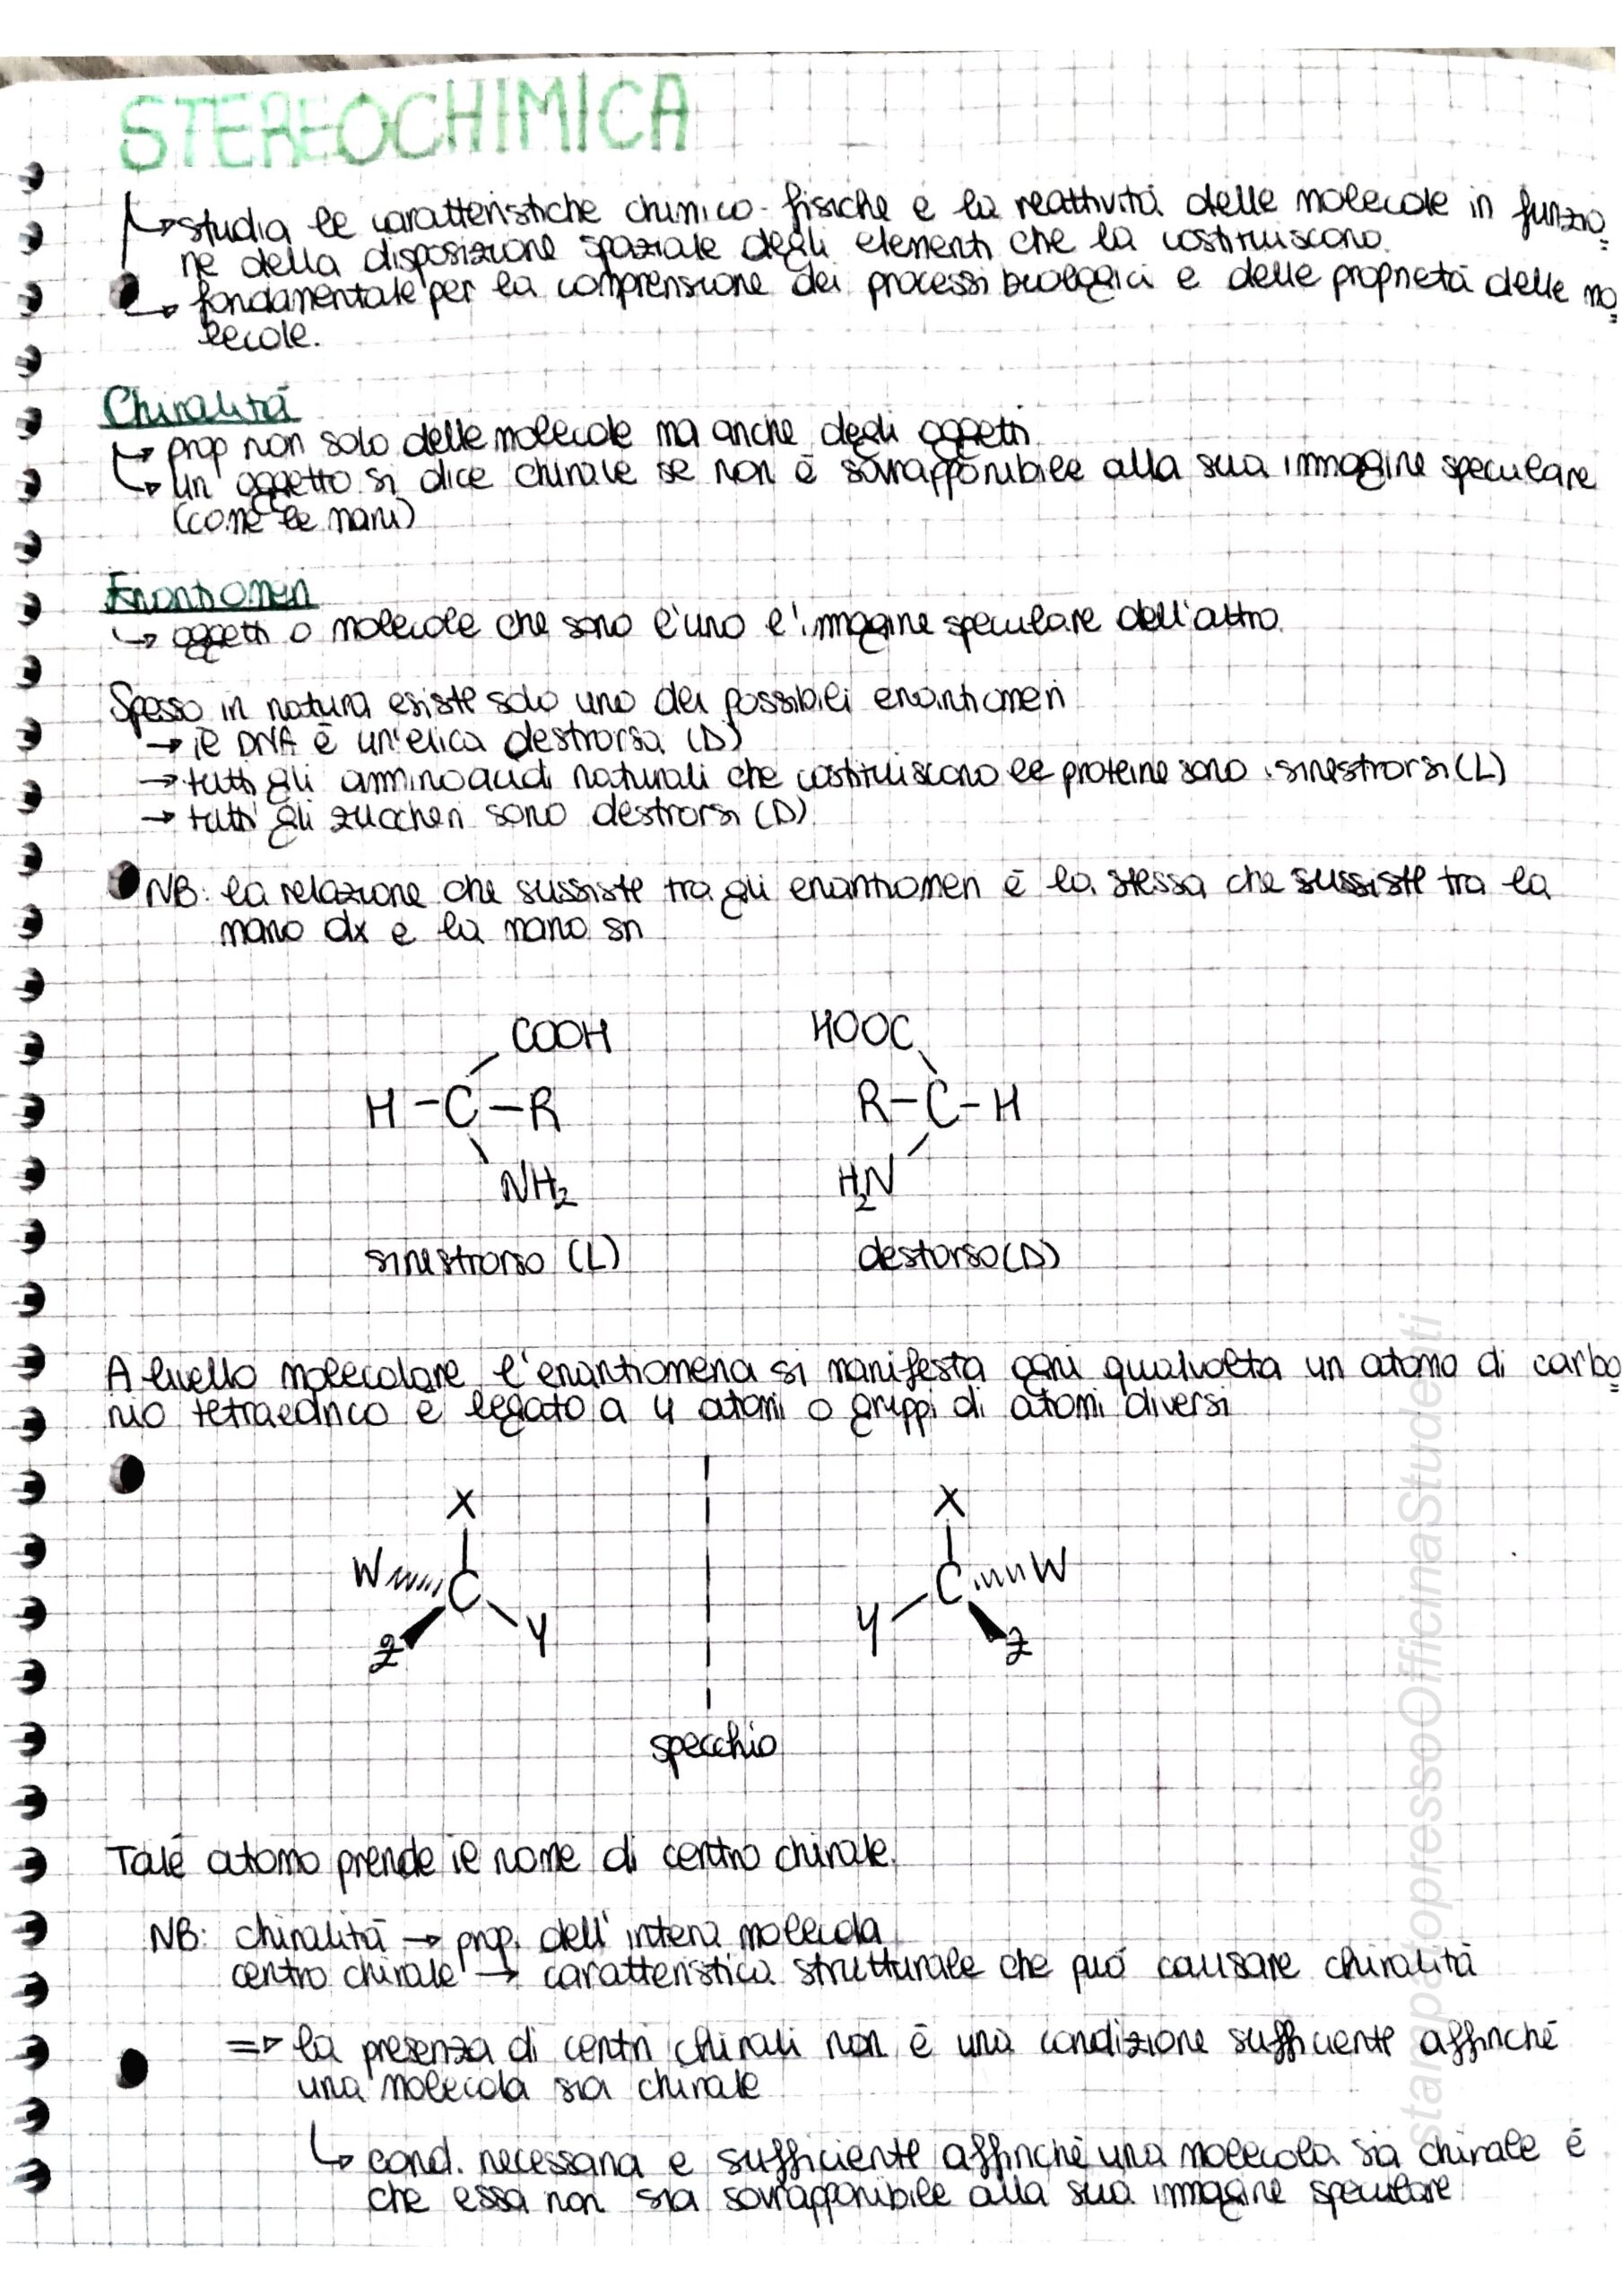 STEREOCHIMICA
↳ studia le caratteristiche chimico-fisiche e la reattività delle molecole in funzio=
ne della disposizione spaziale degli elementi che la costituiscono.
↳ fondamentale per la comprensione dei processi biologici e delle proprietà delle mo=
lecole.
Chiralità
↳ prop non solo delle molecole ma anche degli oggetti
↳ un oggetto si dice chirale se non è sovrapponibile alla sua immagine speculare
(come le mani)
Enantiomeri
↳ oggetti o molecole che sono l'uno l'immagine speculare dell'altro.
Spesso in natura esiste solo uno dei possibili enantiomeri
→ il DNA è un'elica destrorsa (D)
→ tutti gli amminoacidi naturali che costituiscono le proteine sono sinestrorsi (L)
→ tutti gli zuccheri sono destrorsi (D)
NB: la relazione che sussiste tra gli enantiomeri è la stessa che sussiste tra la
mano dx e la mano sn
COOH HOOC
H-C-R R-C-H
NH2 H2N
sinestrorso (L) destorso (D)
A livello molecolare l'enantiomeria si manifesta ogni qualvolta un atomo di carbo=
nio tetraedrico è legato a 4 atomi o gruppi di atomi diversi
X X
W C C W
Z Y Y Z
specchio
Tale atomo prende il nome di centro chirale.
NB: chiralità → prop. dell'intera molecola
centro chirale → caratteristica strutturale che può causare chiralità
⇒ la presenza di centri chirali non è una condizione sufficiente affinché
una molecola sia chirale
↳ cond. necessaria e sufficiente affinché una molecola sia chirale è
che essa non sia sovrapponibile alla sua immagine speculare
stampatopressoOfficinaStudenti